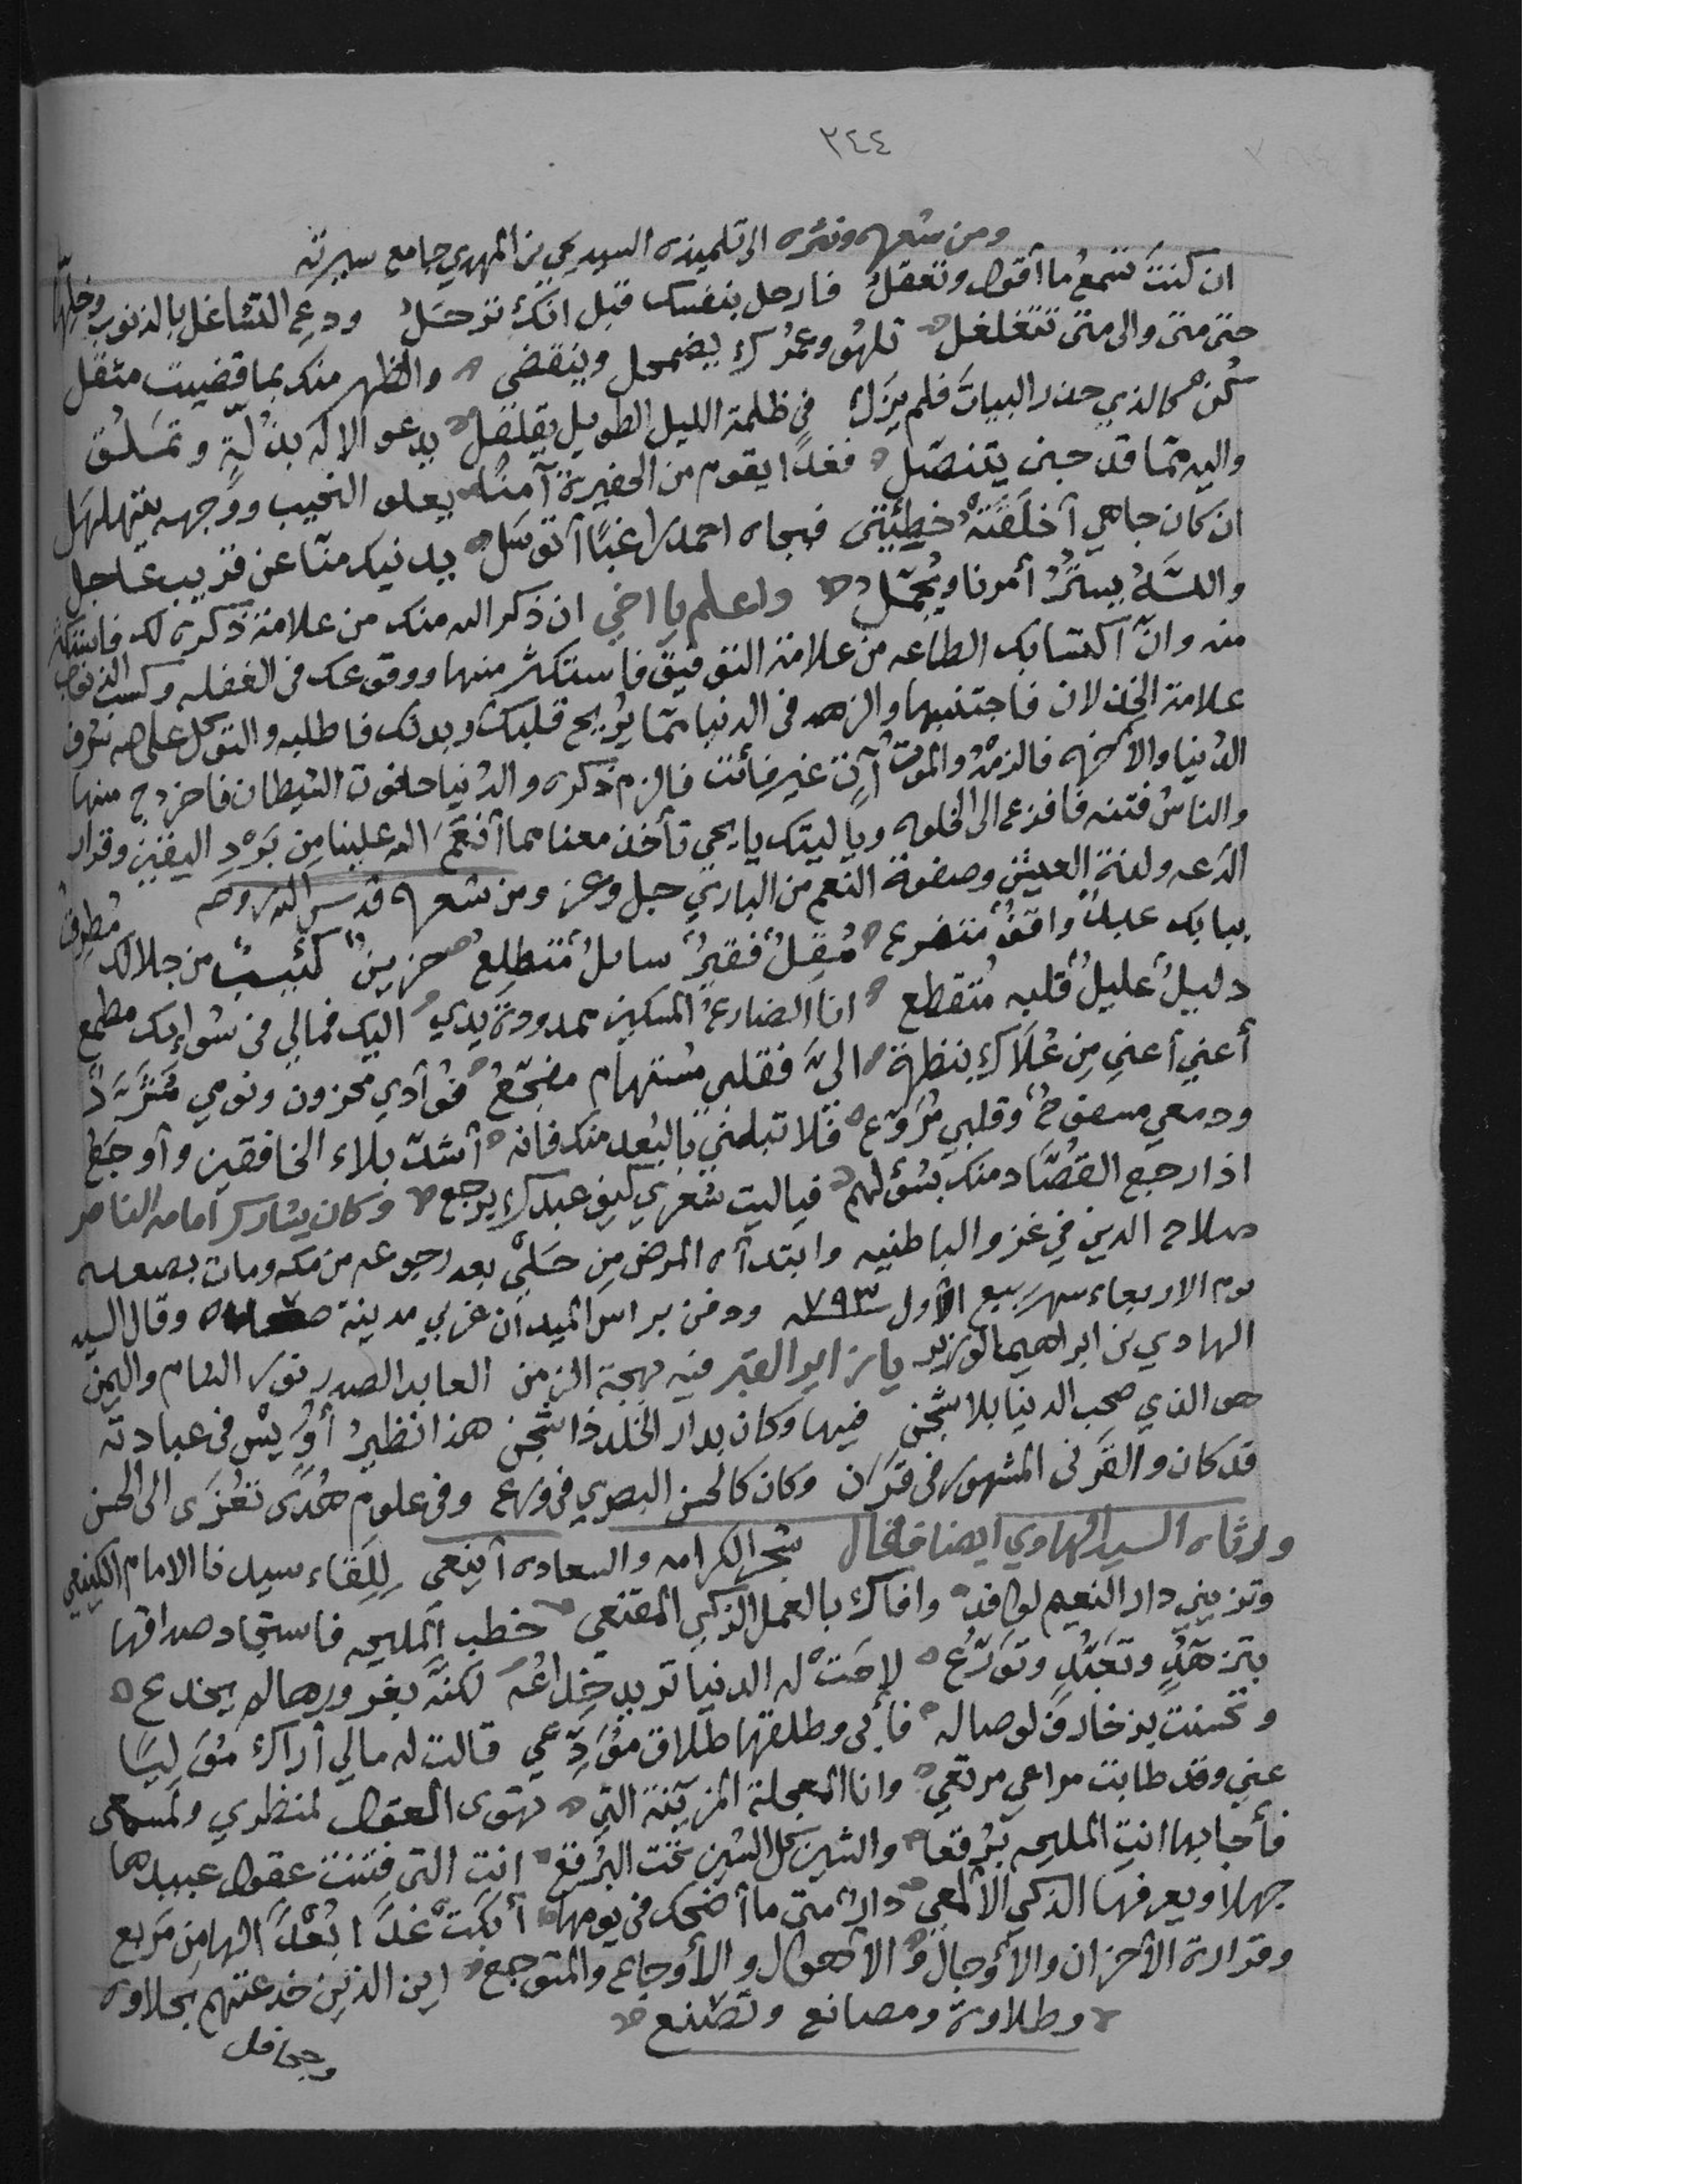 ٢٤٤
ومن شعره ونثره الى تلميذه السيد يحيى بن المهدي جامع سيرته
ان كنتَ تسمعُ ما أقول وتعقلُ فارحل بنفسك قبل انكَ ترحَلُ ودعِ التشاغل بالذنوب وخلِّها
حتى متى والى متى تتغلغل تلهو وعمرُك يضمحل وينقضي والظهر منك بما قضيت مثقل
كن كالذي حذر البيات فلم يزل في ظلمة الليل الطويل يقلقل يدعو الاله بذلّةٍ وتمَلُّق
واليه مما قد جنى يتنصّل فغدًا يقوم من الحفيرة آمنًا يعلو النجيب ووجهه يتهلهل
ان كان جاهي أخلَقَتْه خطيئتي فبجاه احمد راغبًا أتوسّل يدنيك منّا عن قريب عاجل
واللّهُ يسترُ أمرنا ويُجمّل واعلم يا اخي ان ذكر الله منك من علامة ذكره لك فاستكثر
منه وانّ اكتسابك الطاعه من علامة التوفيق فاستكثر منها ووقوعك فى الغفله وكسب الذنوب
علامة الخذلان فاجتنبها والزهد فى الدنيا ممّا يُريح قلبك وبدنك فاطلبه والتوكل على الله شرف
الدنيا والآخره فالزمْهُ والموتُ آتٍ غير فائت فالزم ذكره والدنيا حانوت الشيطان فاخرج منها
والناسُ فتنه فافزع الى الخلوه ويا ليتك يا يحيى تأخذ معنا مما أنعَمَ الله علينا مِن بَرْدِ اليقين وقرار
الدَعه ولذةِ العيش وصفوة النعم من الباري جل وعز ومن شعره قدس الله روحه
ببابك عبدٌ واقفٌ متضرع مُقِلٌ فقيرٌ سائلٌ متطلِعُ حزينٌ كئيبٌ من جلالك مُطرِقٌ
ذليلٌ عليلٌ قلبه مُتقطع انا الضارعُ المسكين ممدودة يدي اليك فمالي فى سواك مطمع
أعني أعني مِن عُلاك بنظرة اليَّ فقلبي مستهام مفجّعُ فؤادي محزون ونومي مُشَرَّدٌ
ودمعي مسفوحٌ وقلبي مُرَوّع فلا تبلني بالبُعد منك فانه أشدّ بلاء الخافقين وأوجَعُ
اذا رجع القُصّاد منك بسُؤلهم فياليت شعري كيف عبدك يرجع وكان يشارك امامه الناصر
صلاح الدين في غزو الباطنيه وابتدأه المرض مِن حَلْي بعد رجوعه من مكه ومات بصعده
يوم الاربعاء شهر ربيع الأول سنة ٧٩٣ ودفن براس الميدان غربي مدينة صعده وقال السيد
الهادي بن ابراهيم الوزير يا زاير القبر فيه بهجة الزمن العابد الصدر نور الشام واليمن
هو الذي صحب الدنيا بلا شجن فيها وكان بدار الخلد ذا شجن هذا نظيرُ أوَيس فى عبادته
قد كان والقَرَنى المشهور فى قَرَن وكان كالحسن البصري فى ورع وفى علوم هُدًى تعُزَى الى الحسن
ورثاه السيد الهادي ايضا فقال شجر الكرامه والسعاده أينعي لِلِقاء سيدنا الامام الكينعي
وتزيني دار النعيم لوافد وافاك بالعمل الزكي المقنعي خطب المليحه فاستجاد صداقها
بتزهّدٍ وتعبّدٍ وتورّعِ لاحَتْ له الدنيا تريد خداعُه لكنّه بغرورها لم يخدع
وتحسنت بزخارف لوصاله فأبى وطلقها طلاق مُوَدِّعِي قالت له مالي أراك مُوَليًا
عني وقد طابت مراعي مرتعي وانا المعجلة المزيّنة التي تهوى العقول لمنظري ولمسمعى
فأجابها انتِ المليحه بُرْقعًا والشين كل الشين تحت البُرقع انت التى فتنت عقول عبيدها
جهلا ويعرفها الذكي الألمعي دارٌ متى ما أضحكت فى يومها أبكَتْ غدًا بُعْدًا لها من مَربع
وقرارة الأحزان والأوجال والأهوال والأوجاع والمتوجع اين الذين خدعتهم بحلاوه
وطلاوة ومصانع وتصنع
وجحافل